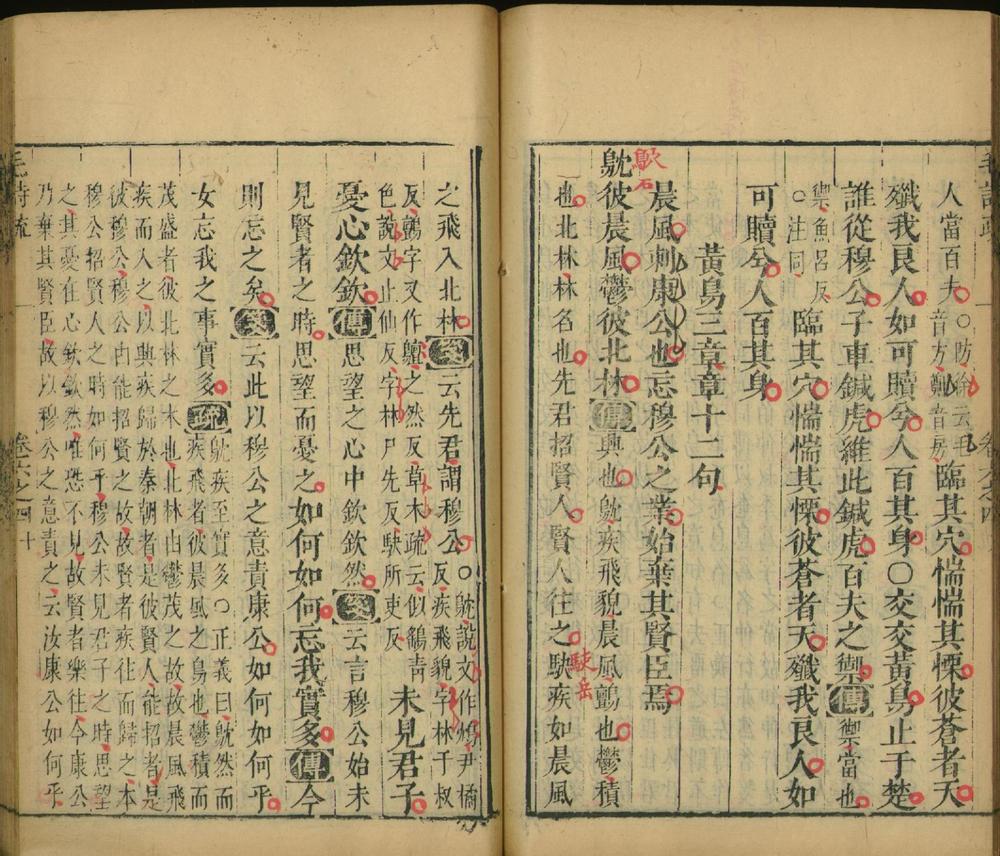 毛詩疏 卷六之四
人當百夫○防徐云毛
音方鄭音房臨其穴惴惴其慄彼蒼者天
殲我良人如可贖兮人百其身○交交黃鳥止于楚
誰從穆公子車鍼虎維此鍼虎百夫之禦傳禦當也
禦魚呂反
○注同臨其穴惴惴其慄彼蒼者天殲我良人如
可贖兮人百其身
黃鳥三章章十二句
晨風刺康公也忘穆公之業始棄其賢臣焉
鴥彼晨風鬱彼北林傳興也鴥疾飛貌晨風鸇也鬱積
也北林林名也先君招賢人賢人往之駛疾如晨風
之飛入北林箋云先君謂穆公○鴥說文作鴪尹橘
反疾飛貌字林于叔
反鸇字又作之然反草木疏云似鷂青
色說文止仙反字林尸先反駛所吏反未見君子
憂心欽欽傳思望之心中欽欽然箋云言穆公始未
見賢者之時思望而憂之如何如何忘我實多傳今
則忘之矣箋云此以穆公之意責康公如何如何乎
女忘我之事實多疏鴥疾至實多○正義曰鴥然而
疾飛者彼晨風之鳥也鬱積而
茂盛者彼北林之木也北林由鬱茂之故故晨風飛
疾而入之以興疾歸於秦朝者是彼賢人能招者是
彼穆公穆公由能招賢之故故賢者疾往而歸之本
穆公招賢人之時如何乎穆公未見君子之時思望
之其憂在心欽欽然唯恐不見故賢者樂往今康公
乃棄其賢臣故以穆公之意責之云汝康公如何乎
毛詩疏 卷六之四 十